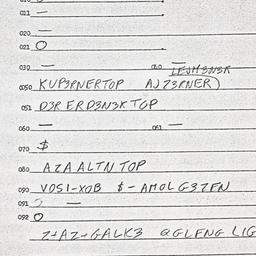 011 —
020 —
021 O
030 — 040 —
050 KUP3RNERTOP
051 D3R ERD3N3K TOP
060 — 061 —
070 $
080 AZA ALTN TOP
090 VOSI-XOB $-AMOL G3ZFN
091 —
092 O
Z+AZ+GALK3 @GLFNG LIG